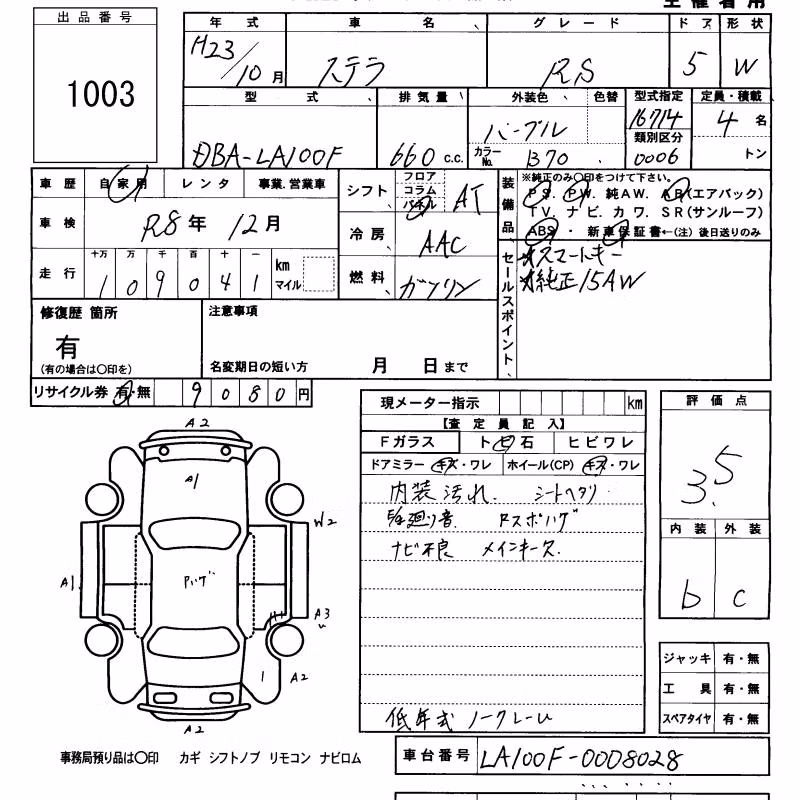 出品番号
1003
年式 車名 グレード ドア 形状
H23/10月 ステラ RS 5 W
型式 排気量 外装色 色替 型式指定 定員・積載
DBA-LA100F 660 c.c. パープル 16714 4名
カラーNo. B70 類別区分 0006 トン
車歴 自家用 レンタ 事業.営業車
車検 R8年 12月
走行 十万 万 千 百 十 一
109041 km マイル
シフト フロア コラム パネル AT
冷房 AAC
燃料 ガソリン
装備品 ※純正のみ○印をつけて下さい。
PS. PW. 純AW. AB(エアバック)
TV. ナビ. カワ. SR(サンルーフ)
ABS ・ 新車保証書←(注) 後日送りのみ
セールスポイント
スマートキー
純正15AW
修復歴 箇所 注意事項
有
(有の場合は○印を) 名変期日の短い方 月 日まで
リサイクル券 有・無 9080円
現メーター指示 km
【査定員記入】
Fガラス トビ石 ヒビワレ
ドアミラー キズ・ワレ ホイール(CP) キズ・ワレ
内装汚れ. シートヘタリ
ナビ不良 メインキース.
低年式 ノークレーム
評価点
3.5
内装 外装
b c
A2
A1
W2
A1
A3
1 A2
A2
ジャッキ 有・無
工具 有・無
スペアタイヤ 有・無
事務局預り品は○印 カギ シフトノブ リモコン ナビロム
車台番号 LA100F-0008028